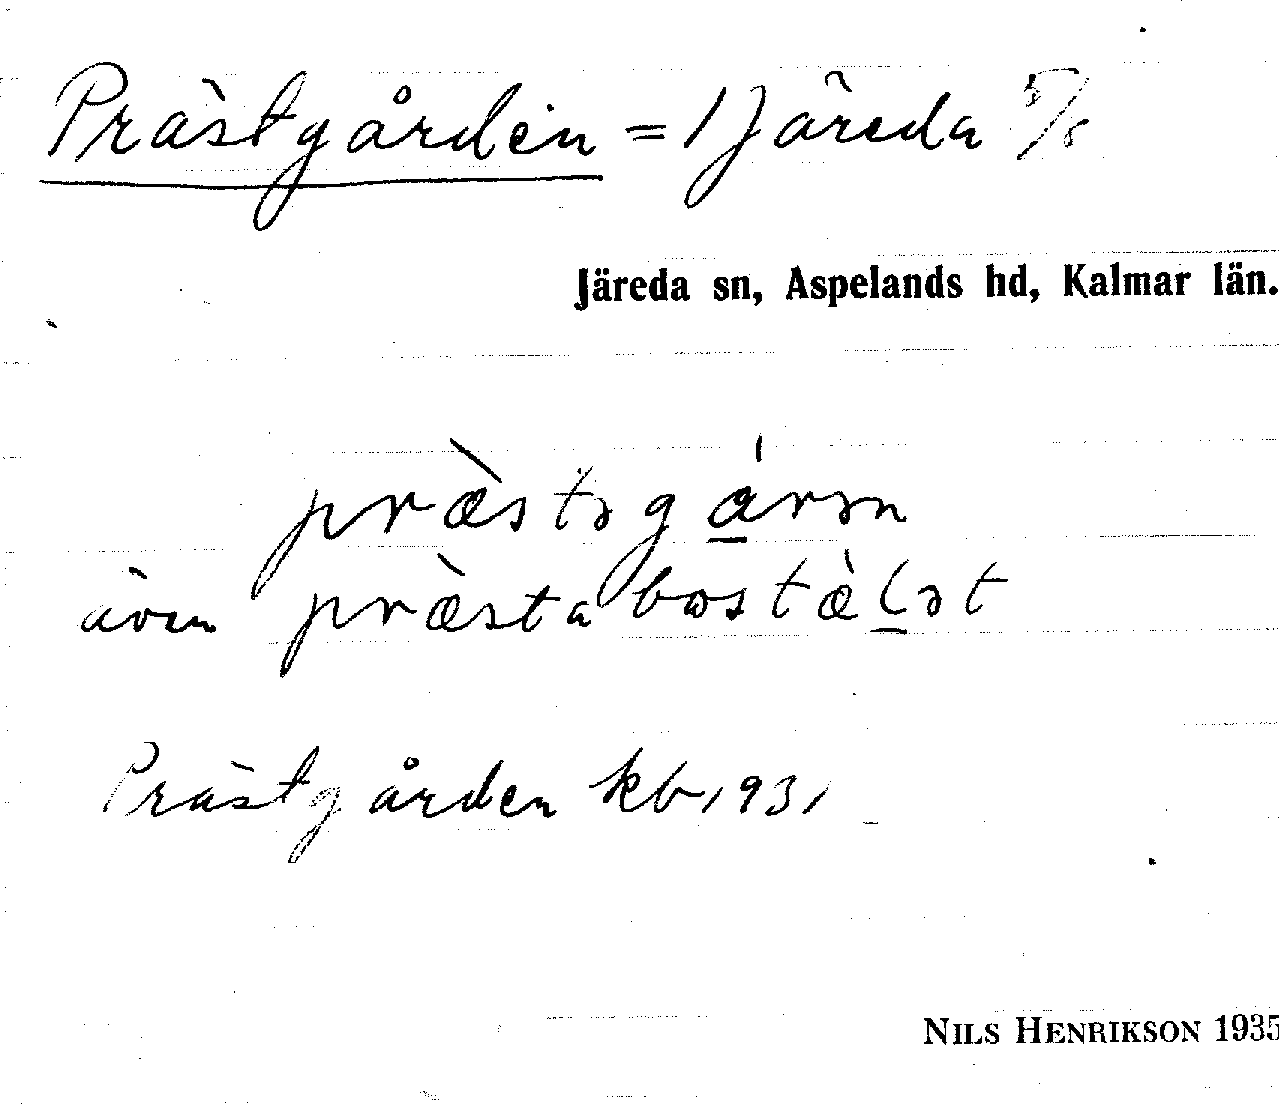 Prästgården = 1 Järeda 5/8
Järeda sn, Aspelands hd, Kalmar län.
præ̀stəgá̲rən
även præ̀stabostæ̀l̲ət
Prästgården kb 1931
NILS HENRIKSON 1935